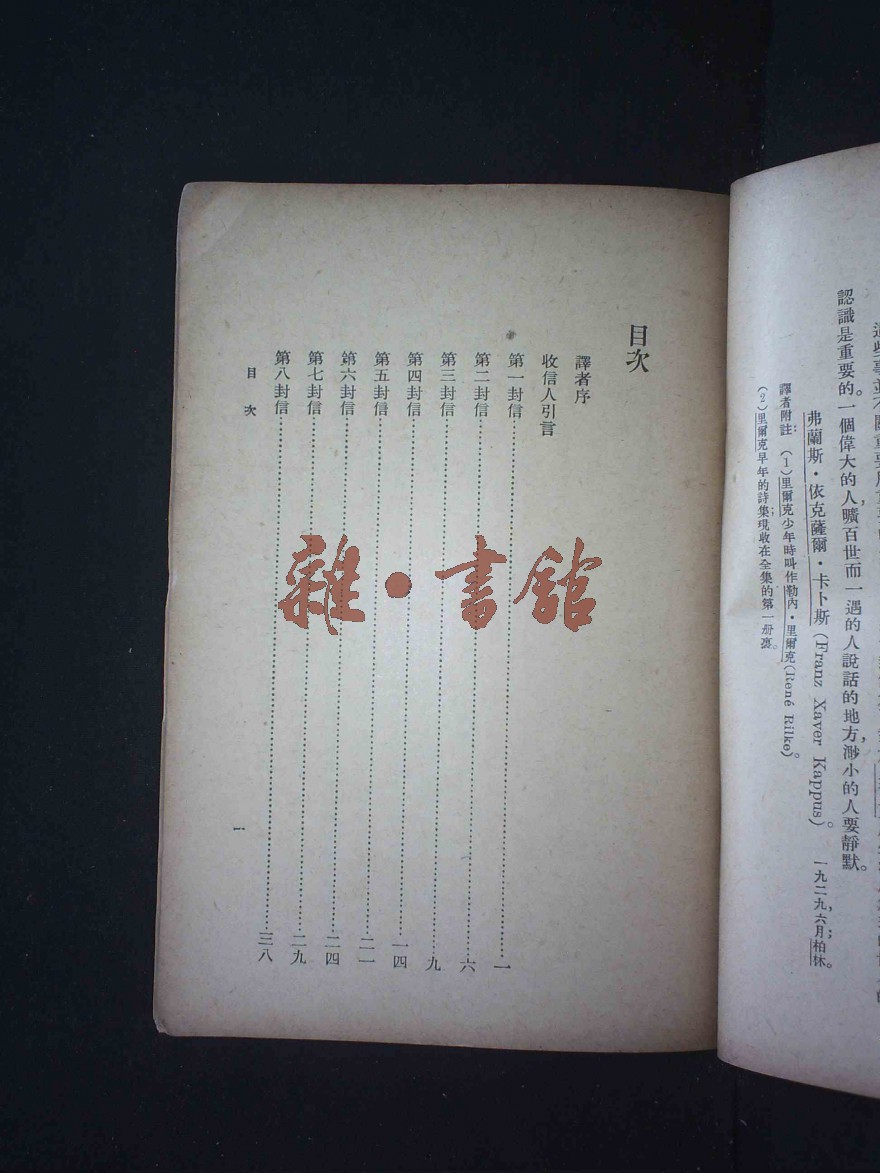 認識是重要的。一個偉大的人，曠百世而一遇的人說話的地方，渺小的人要靜默。
弗蘭斯·依克薩爾·卡卜斯 (Franz Xaver Kappus)。
一九二九，六月；柏林。
譯者附註： (1) 里爾克少年時叫作勒內·里爾克 (René Rilke)。
(2) 里爾克早年的詩集現收在全集的第一册裏。
目次
譯者序
收信人引言
第一封信⋯⋯一
第二封信⋯⋯六
第三封信⋯⋯九
第四封信⋯⋯一四
第五封信⋯⋯二一
第六封信⋯⋯二四
第七封信⋯⋯二九
第八封信⋯⋯三八
目 次
一
雜·書館